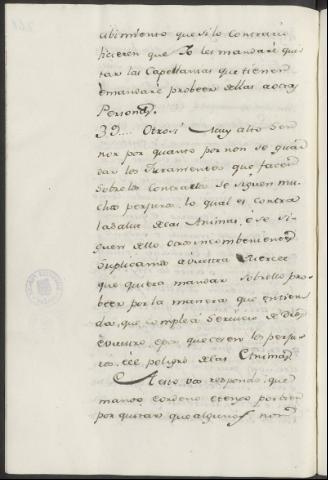 cibimiento que si lo contrario
hicieren que Yo les mandaré qui
tar las Capellanias que tienen
é mandaré probeer dellas a otras
Personas.
39.... Otrosi Muy alto Señ
nor por quanto por non se guar
dar los Juramentos que facen
sobre los Contractos se siguen mu
chos perjuros lo qual es contra
la salud de las Animas, é se si
guen dello otros incombenientes
Suplicamos a vuestra Merced
que quiera mandar sobrello pro
beer por la manera que entien
da, que cumple á Servicio de Dios
é vuestro, é por que cesen los perju
ros, é el peligro de las Animas.
A esto vos respondo, que
mando é ordeno é tengo por bien
por quitar que algunos non